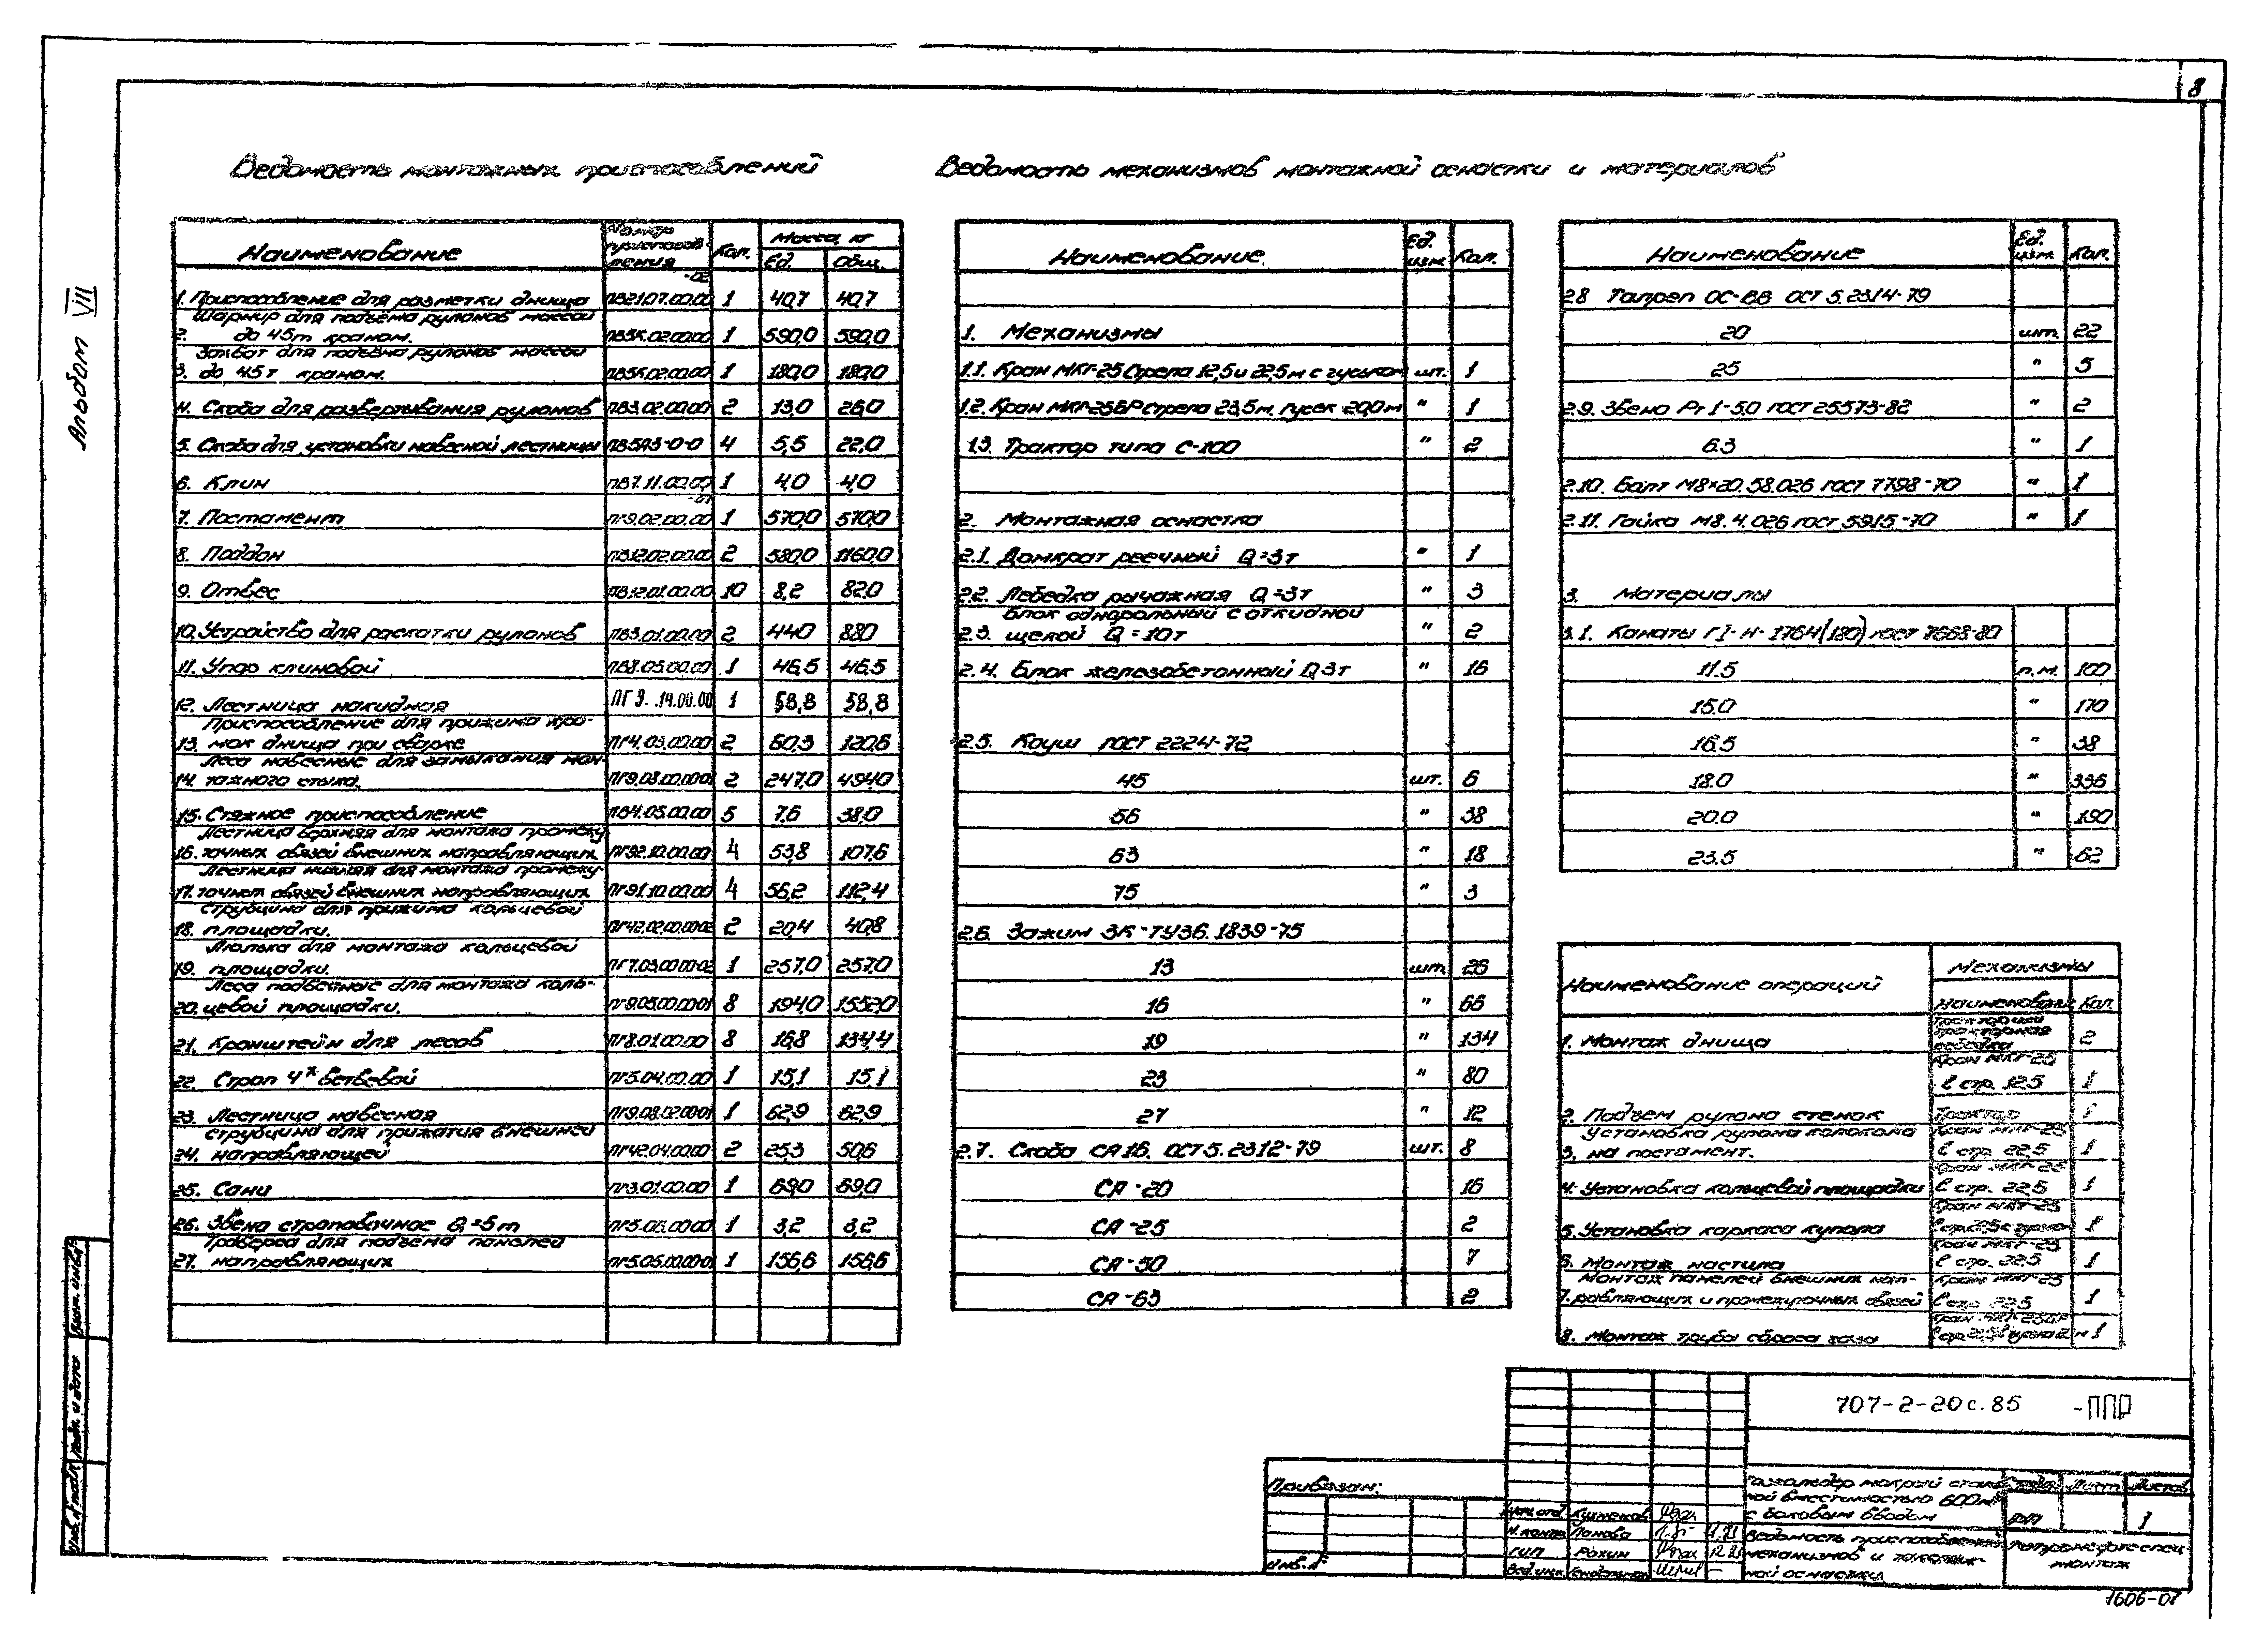 8
Альбом VII
Ведомость монтажных приспособлений
Наименование Номер приспособления Кол. Масса, кг
Ед. Общ.
-02
1. Приспособление для разметки днища ПВ21.07.00.00 1 40,7 40,7
Шарнир для подъёма рулонов массой
2. до 45т краном. ПВ5К.02.00.00 1 590,0 590,0
Захват для подъёма рулонов массой
3. до 45т краном. ПВ5К.02.00.00 1 180,0 180,0
4. Скоба для развертывания рулонов ПВ3.02.00.00 2 13,0 26,0
5. Скоба для установки навесной лестницы ПВ593-0-0 4 5,5 22,0
6. Клин ПВ7.11.00.00 1 4,0 4,0
-01
7. Постамент ПГ9.02.00.00 1 570,0 570,0
8. Поддон ПВ12.02.00.00 2 580,0 1160,0
9. Отвес ПВ12.01.00.00 10 8,2 82,0
10. Устройство для раскатки рулонов ПВ3.01.00.00 2 440 880
11. Упор клиновой ПВ8.05.00.00 1 46,5 46,5
12. Лестница накидная ПГ9.14.00.00 1 58,8 58,8
Приспособление для прижима кро-
13. мок днища при сварке ПГ4.03.00.00 2 60,3 120,6
Леса навесные для замыкания мон-
14. тажного стыка. ПГ9.03.00.00-01 2 247,0 494,0
15. Стяжное приспособление ПВ4.05.00.00 5 7,6 38,0
Лестница верхняя для монтажа промежу-
16. точных связей внешних направляющих ПГ92.10.00.00 4 53,8 107,6
Лестница нижняя для монтажа промежу-
17. точных связей внешних направляющих ПГ91.10.00.00 4 56,2 112,4
Струбцина для прижима кольцевой
18. площадки. ПГ42.02.00.00-02 2 20,4 40,8
Люлька для монтажа кольцевой
19. площадки. ПГ7.03.00.00-02 1 257,0 257,0
Леса подвесные для монтажа коль-
20. цевой площадки. ПГ9.05.00.00-01 8 194,0 1552,0
21. Кронштейн для лесов ПГ8.01.00.00 8 16,8 134,4
22. Строп 4х ветвевой ПГ5.04.00.00 1 15,1 15,1
23. Лестница навесная ПГ9.08.02.00-01 1 62,9 62,9
Струбцина для прижатия внешней
24. направляющей ПГ42.04.00.00 2 25,3 50,6
25. Сани ПГ3.01.00.00 1 69,0 69,0
26. Звено строповочное Q=5т ПГ5.06.00.00 1 3,2 3,2
Траверса для подъема панелей
27. направляющих ПГ5.05.00.00-01 1 156,6 156,6
Ведомость механизмов монтажной оснастки и материалов
Наименование Ед. изм. Кол.
1. Механизмы
1.1. Кран МКГ-25 Стрела 12,5 и 22,5м с гуськом шт. 1
1.2. Кран МКГ-25БР стрела 23,5м. Гусек 20,0м " 1
1.3. Трактор типа С-100 " 2
2. Монтажная оснастка
2.1. Домкрат реечный Q=3т " 1
2.2. Лебедка рычажная Q=3т " 3
Блок однорольный с откидной
2.3. щекой Q=10т " 2
2.4. Блок железобетонный Q3т " 16
2.5. Коуш ГОСТ 2224-72
45 шт. 6
56 " 38
63 " 18
75 " 3
2.6. Зажим ЗК-ТУ36.1839-75
13 шт 26
16 " 66
19 " 134
23 " 80
27 " 12
2.7. Скоба СА16. ОСТ5.2312-79 шт. 8
СА-20 16
СА-25 2
СА-50 7
СА-63 2
Наименование Ед. изм. Кол.
2.8 Талреп ОС-ВВ ОСТ 5.2314-79
20 шт. 22
25 " 5
2.9. Звено Рт1-5,0 ГОСТ 25573-82 " 2
6.3 " 1
2.10. Болт М8×20.58.026 ГОСТ 7798-70 " 1
2.11. Гайка М8.4.026 ГОСТ 5915-70 " 1
3. Материалы
3.1. Канаты Г-I-Н-1764(180) ГОСТ 7668-80
11.5 п.м. 100
15.0 " 170
16.5 " 38
18.0 " 336
20.0 " 190
23.5 " 62
Наименование операций Механизмы
Наименование Кол.
1. Монтаж днища Трактор или тракторная лебедка 2
Кран МКГ-25
с стр. 12.5 1
2. Подъем рулона стенок Трактор 1
Установка рулона колокола Кран МКГ-25
3. на постамент. с стр. 22.5 1
Кран МКГ-25
4. Установка кольцевой площадки с стр. 22.5 1
Кран МКГ-25
5. Установка каркаса купола 1
Кран МКГ-25
6. Монтаж настила с стр. 22.5 1
Монтаж панелей внешних нап- Кран МКГ-25
7. равляющих и промежуточных связей с стр. 22.5 1
8. Монтаж трубы сброса газа 1
707-2-20с.85 -ППР
Привязан:
Инв.№
Нач.отд.
Н.контр. Попова
ГИП Рохин
Вед.инж.
Газгольдер мокрый сталь-
ной вместимостью 600м³
с боковым вводом
Стадия Лист Листов
РП 1
Ведомость приспособлений
механизмов и такелаж-
ной оснастки
Гипронефтеспец-
монтаж
Взам. инв.№
Подп. и дата
Инв.№ подл.
1606-07